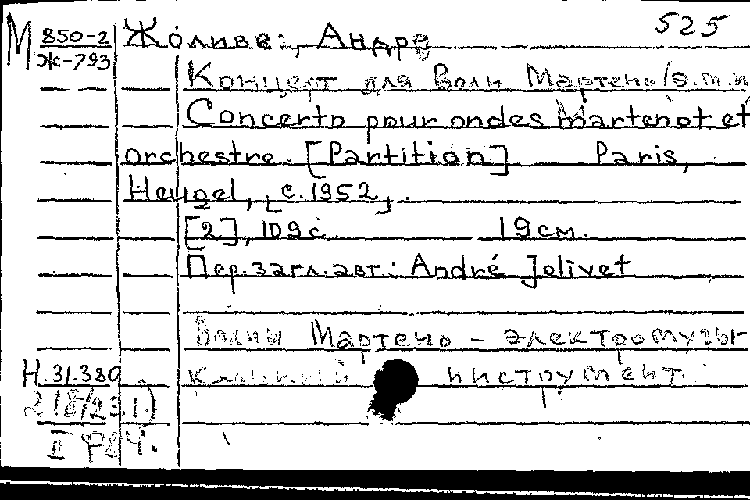 525
М 850-2 Жоливе, Андре
Ж-793
Концерт для Волн Мартено
Concerto pour ondes Martenot et
orchestre. [Partition] Paris,
Heugel, [c. 1952].
[2], 109 с. 19 см.
Пер. загл. авт.: André Jolivet
Волны Мартено - электромузы-
Н.31.380 кальный инструмент.